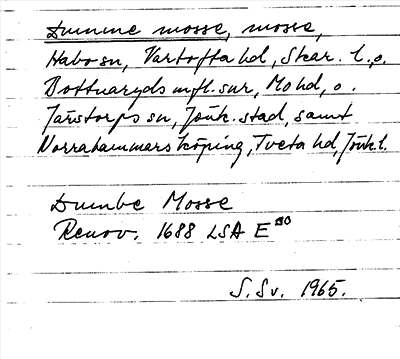 Dumme mosse, mosse,
Habo sn, Vartofta hd, Skar. l., o.
Bottnaryds m fl. snr, Mo hd, o.
Järstorps sn, Jönk. stad, samt
Norrahammars köping, Tveta hd, Jönk. l.
Dumbe Mosse
Renov. 1688 LSA E
S. Sv. 1965.